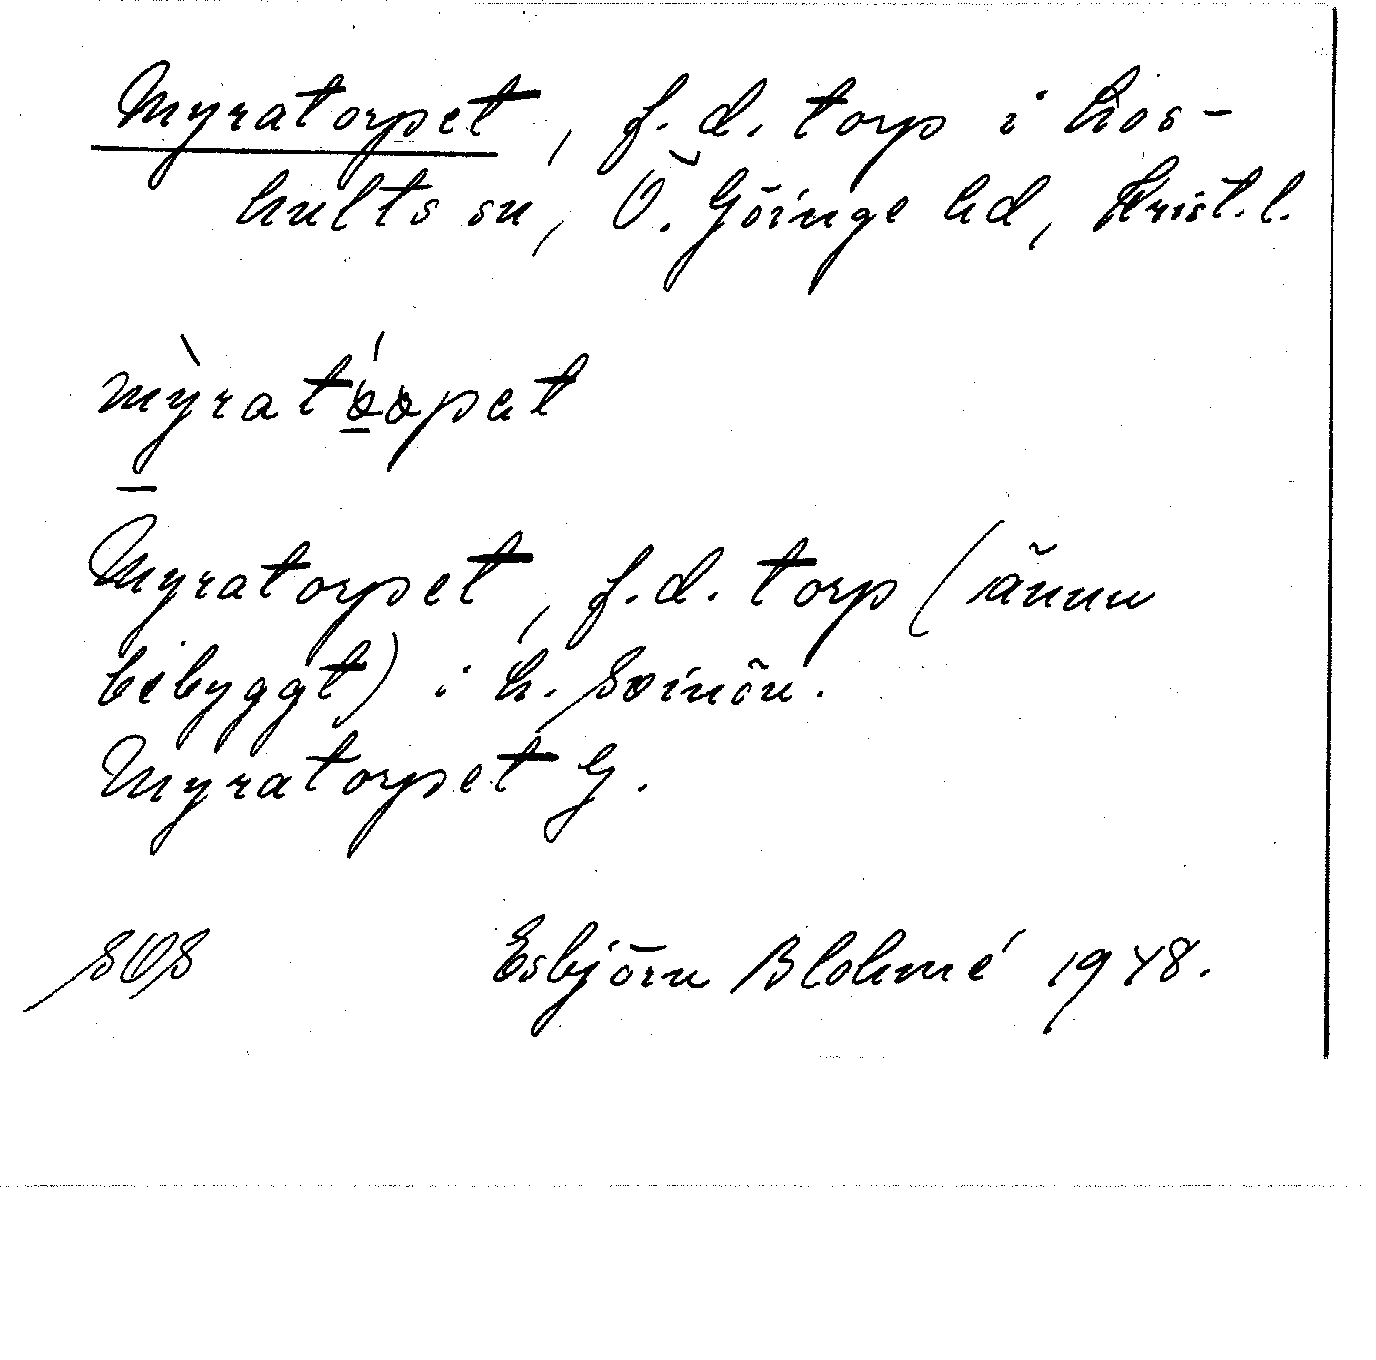 Myratorpet, f.d. torp i Lios-
hults sn, Ö. Göinge hd, Krist.l.
Myratorpet, f.d. torp (ännu
bebyggt) i h. Svinön.
Myratorpet G.
SOS Esbjörn Blohmé 1948.